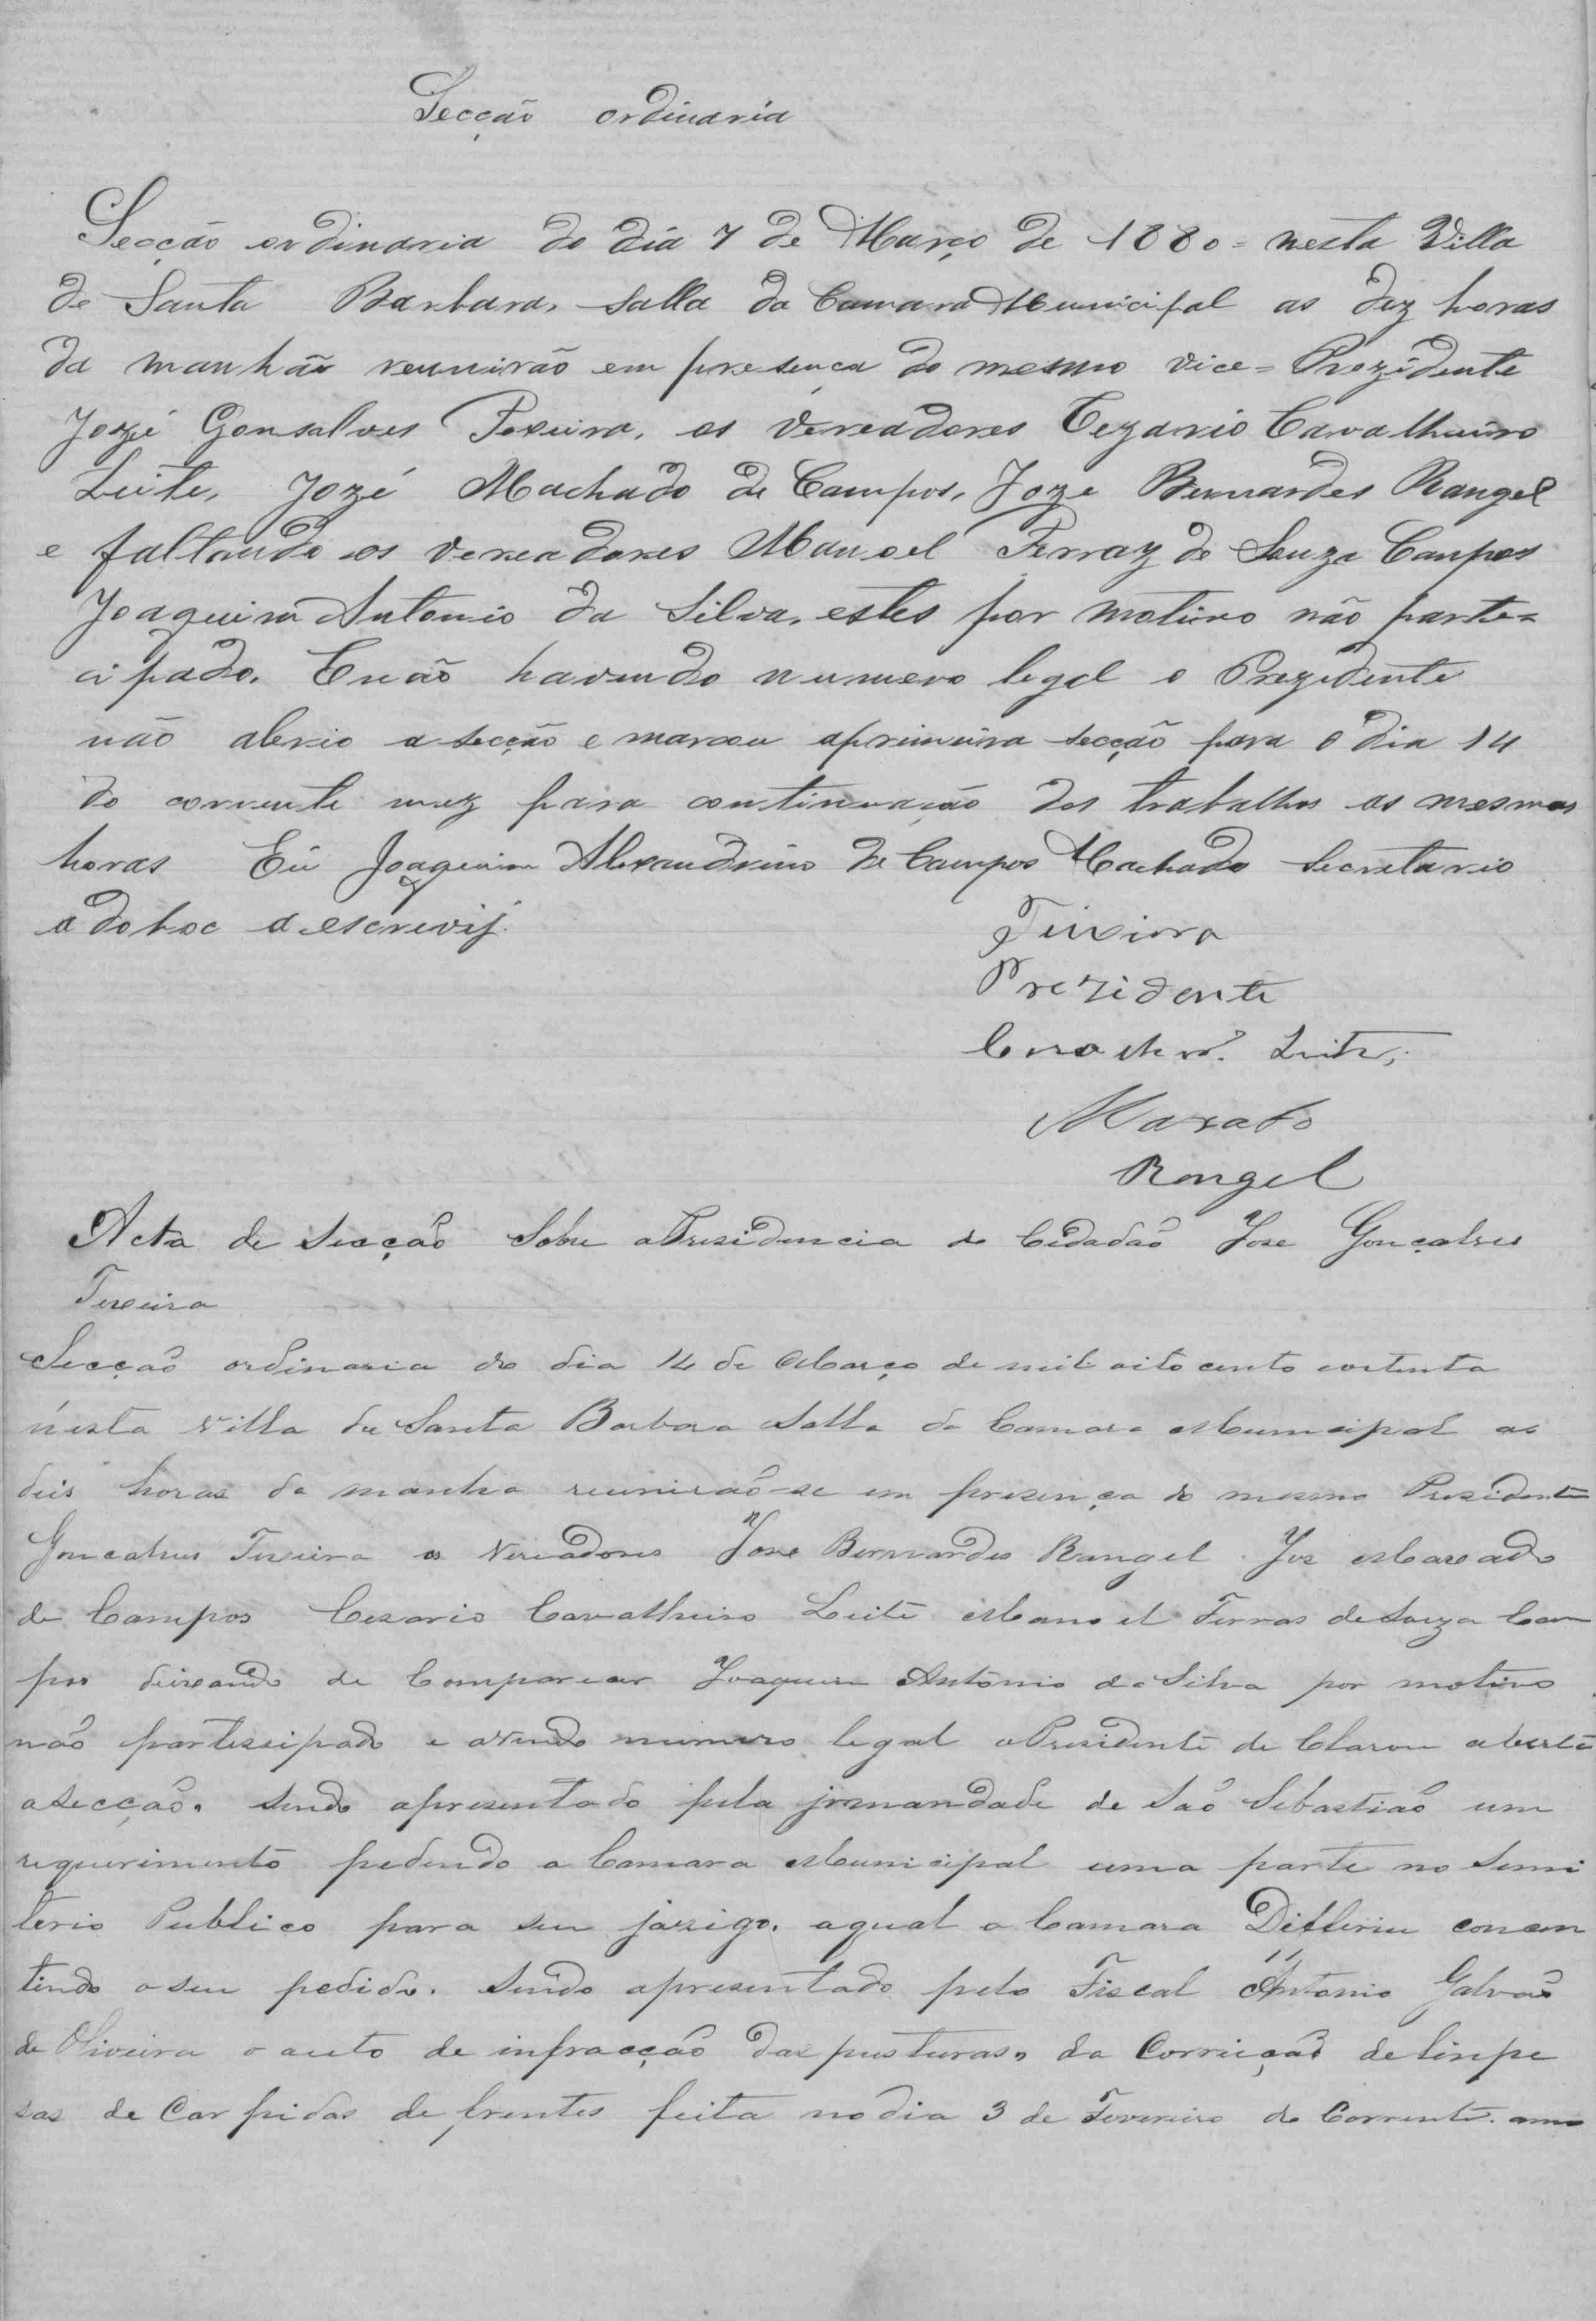 Secção ordinaria
Secção ordinaria do dia 7 de Março de 1880= nesta Villa
de Santa Barbara, salla da Camara Municipal as dez horas
da manhãa reunirão em presença do mesmo vice=Prezidente
Jozé Gonsalves Texeira, os vereadores Cezario Cavalheiro
Leite, Jozé Machado de Campos, Joze Bernardes Rangel
e faltando os vereadores Manoel Ferraz de Souza Campos
Joaquim Antonio da Silva, estes por motivo não parte=
cipado. E não havendo numero legal o Prezidente
não abrio a secção e marcou aprimeira secção para o dia 14
do corrente mez para continuação dos trabalhos as mesmas
horas Eu Joaquim Alexandrino de Campos Machado Secretario
adohoc a escrevij.
Teixiora
Prezidente
Leite,
Maxado
Rangel
Acta de Secção Sobre aPresidencia do Cidadão Jose Gonçalves
Texeira
Secção ordinaria do dia 14 de Março de mil oito cento eoitenta
nesta villa de Santa Barbara Salla da Camara Municipal as
deis horas da manha reunirão-se em presença do mesmo Presidente
Goncalves Texeira os Vereadores Jose Bernardes Rangel Joze Maxado
de Campos Cesario Cavalheiro Leite Manoel Ferras de Souza Cam
pos deixando de Comparecer Joaquim Antonio da Silva por motivo
não partessipado e avendo numero legal oPresidente de Clarou aberta
asecção. sendo apresentado pela jrmandade de São Sebastião um
requerimento pedindo a Camara Municipal uma parte no Semi
terio Publico para seu jazigo. aqual a Camara Differiu concen
tindo oseu pedido. sendo apresentado pelo Fiscal Antonio Galvão
de Oliveira o auto de infracção das pusturas, da Correição de linpe
sas de Carpidas de frentes feita nodia 3 de Fevereiro do Corrente anno